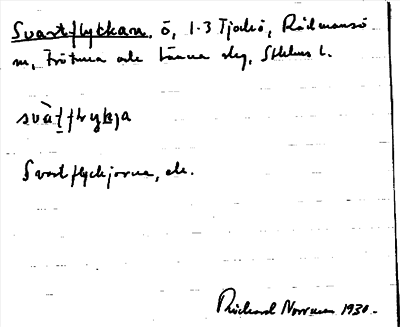 Svartflyttkan, ö, 1-3 Tjockö, Rådmansö
sn, Frötuna och Länna slg, Sthlms l.
svàt̠flykja
Svartflyckjorna, etc.
Rickard Norrman 1930.